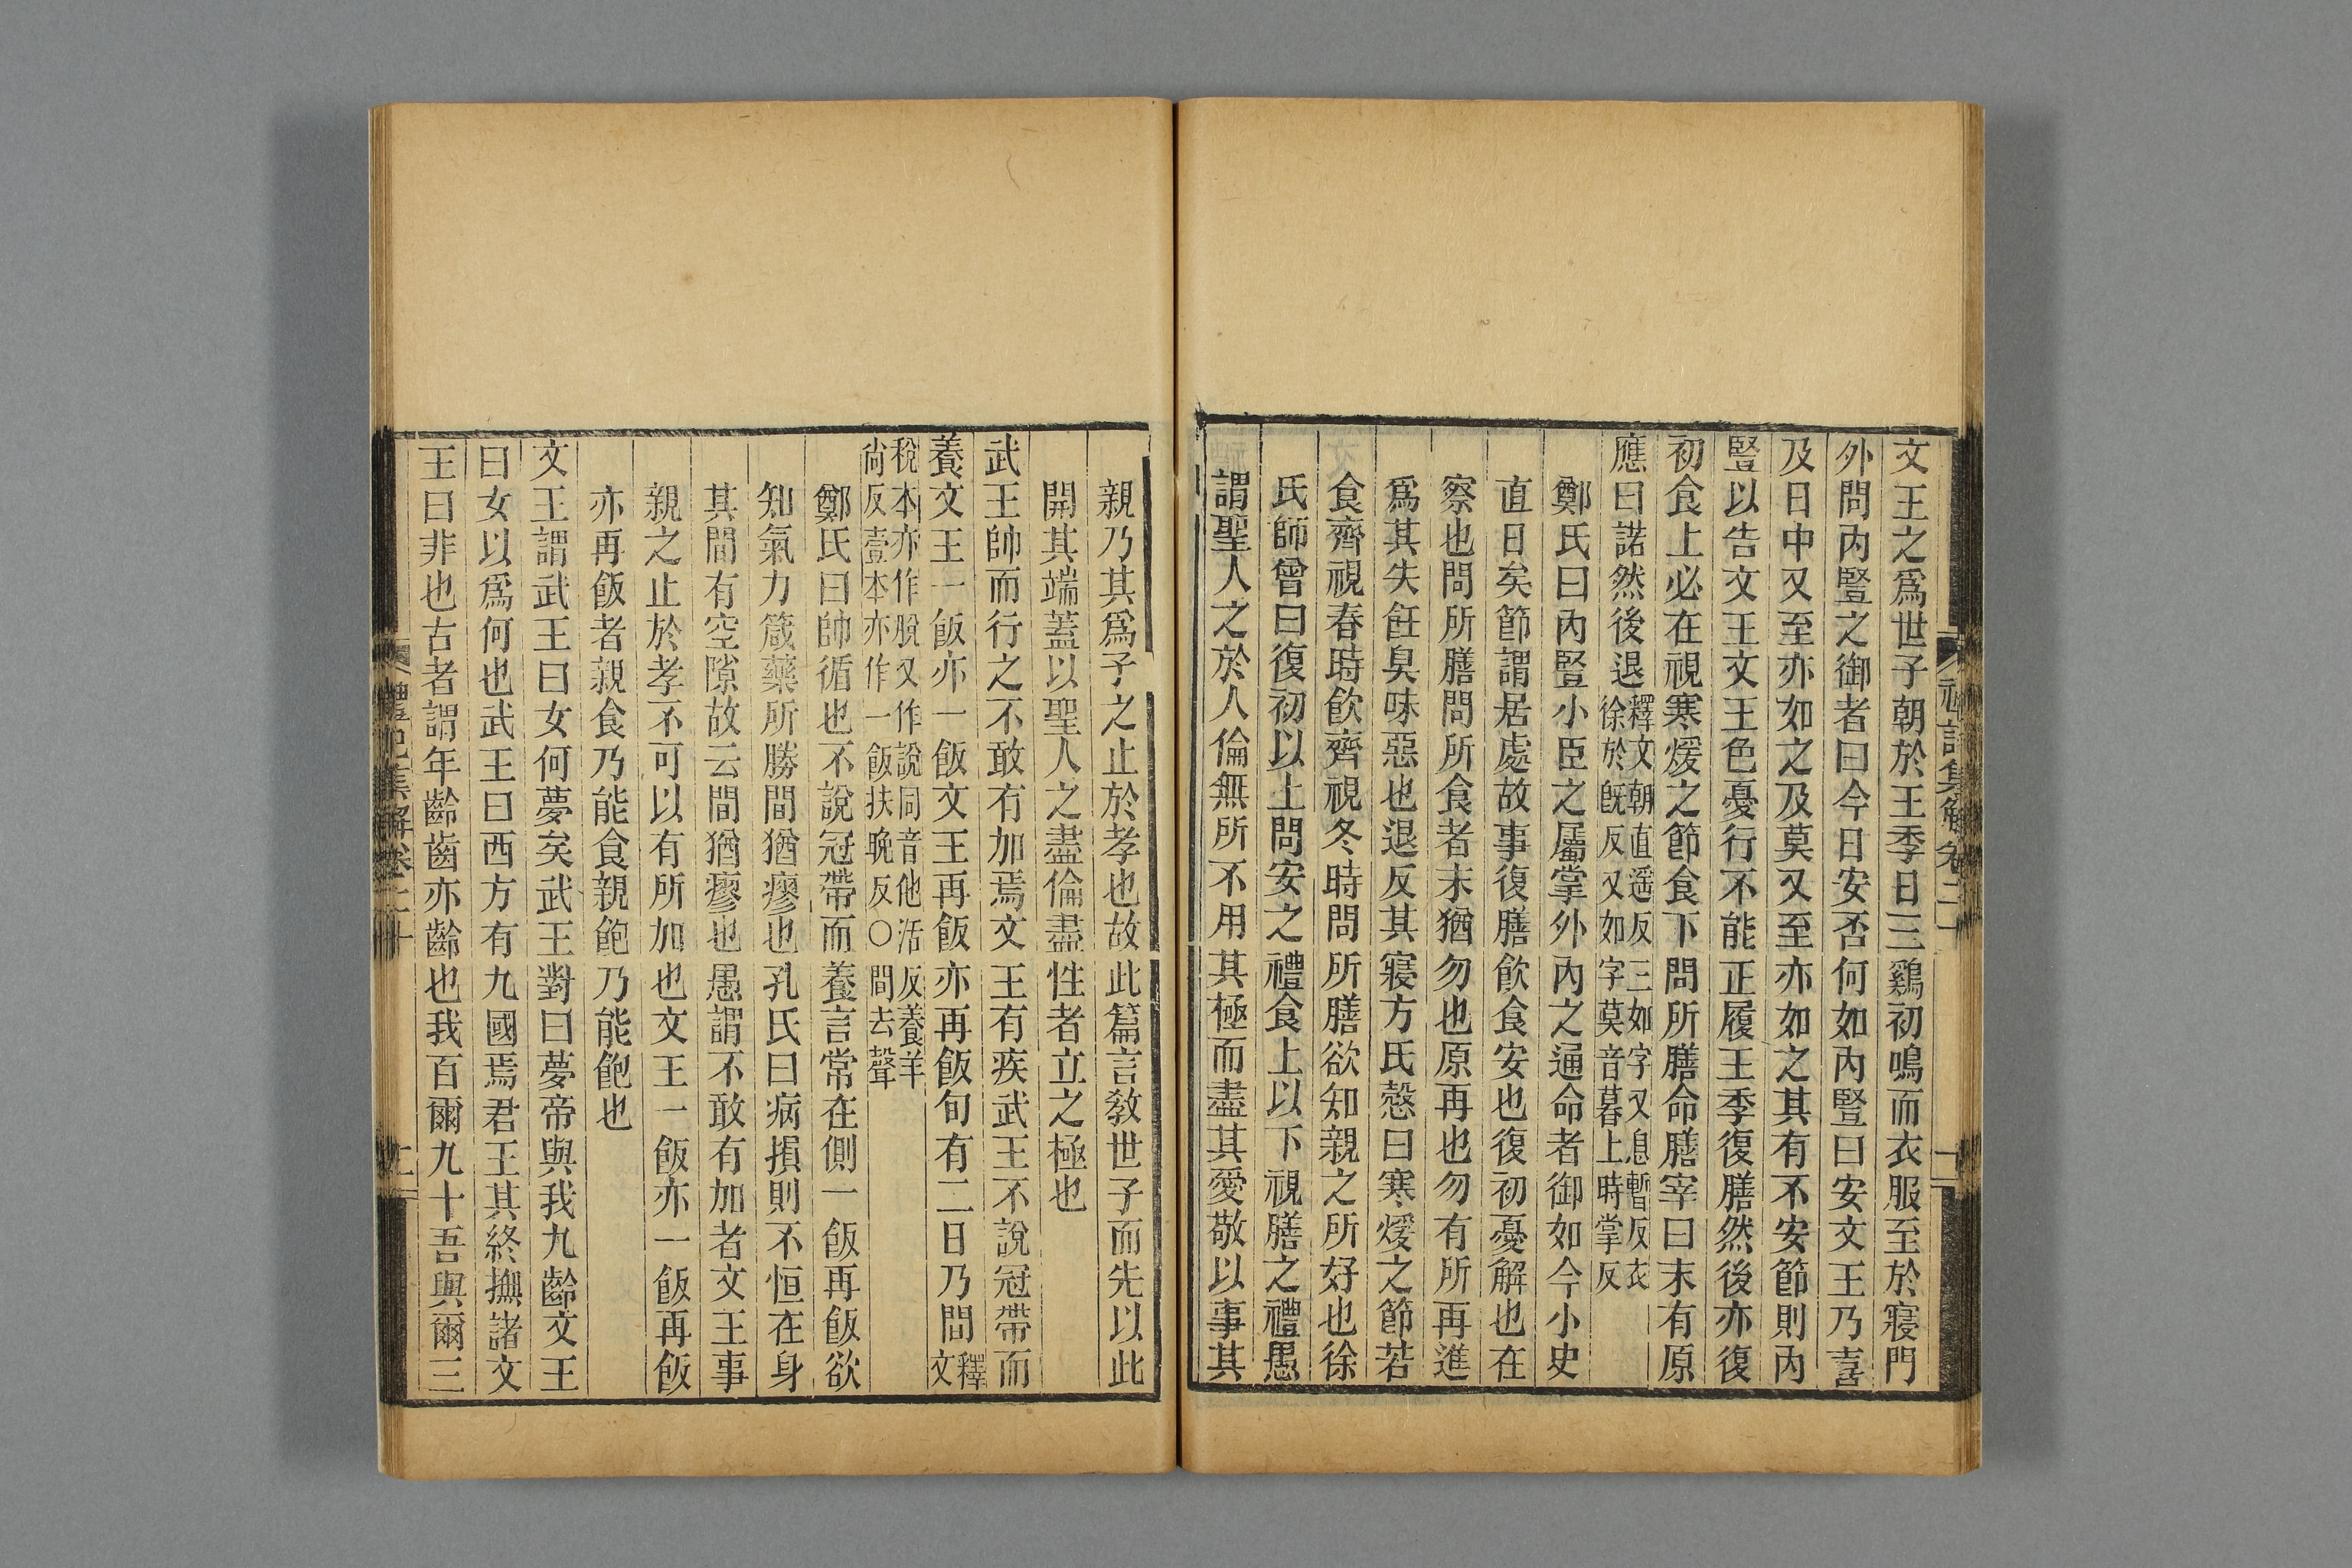 文王之爲世子朝於王季日三鷄初鳴而衣服至於寢門
外問內豎之御者曰今日安否何如內豎曰安文王乃喜
及日中又至亦如之及莫又至亦如之其有不安節則內
豎以告文王文王色憂行不能正履王季復膳然後亦復
初食上必在視寒煖之節食下問所膳命膳宰曰末有原
應曰諾然後退釋文朝直遥反三如字又息暫反衣
徐於旣反又如字莫音暮上時掌反
鄭氏曰內豎小臣之屬掌外內之通命者御如今小史
直日矣節謂居處故事復膳飲食安也復初憂解也在
察也問所膳問所食者末猶勿也原再也勿有所再進
爲其失飪臭味惡也退反其寢方氏慤曰寒煖之節若
食齊視春時飲齊視冬時問所膳欲知親之所好也徐
氏師曾曰復初以上問安之禮食上以下視膳之禮愚
謂聖人之於人倫無所不用其極而盡其愛敬以事其
親乃其爲子之止於孝也故此篇言敎世子而先以此
開其端蓋以聖人之盡倫盡性者立之極也
武王帥而行之不敢有加焉文王有疾武王不說冠帶而
養文王一飯亦一飯文王再飯亦再飯旬有二日乃間釋
文
稅本亦作脫又作說同音他活反養羊
尙反壹本亦作一飯扶晩反○間去聲
鄭氏曰帥循也不說冠帶而養言常在側一飯再飯欲
知氣力箴藥所勝間猶瘳也孔氏曰病損則不恒在身
其間有空隙故云間猶瘳也愚謂不敢有加者文王事
親之止於孝不可以有所加也文王一飯亦一飯再飯
亦再飯者親食乃能食親飽乃能飽也
文王謂武王曰女何夢矣武王對曰夢帝與我九齡文王
曰女以爲何也武王曰西方有九國焉君王其終撫諸文
王曰非也古者謂年齡齒亦齡也我百爾九十吾與爾三
禮記集解卷二十
二